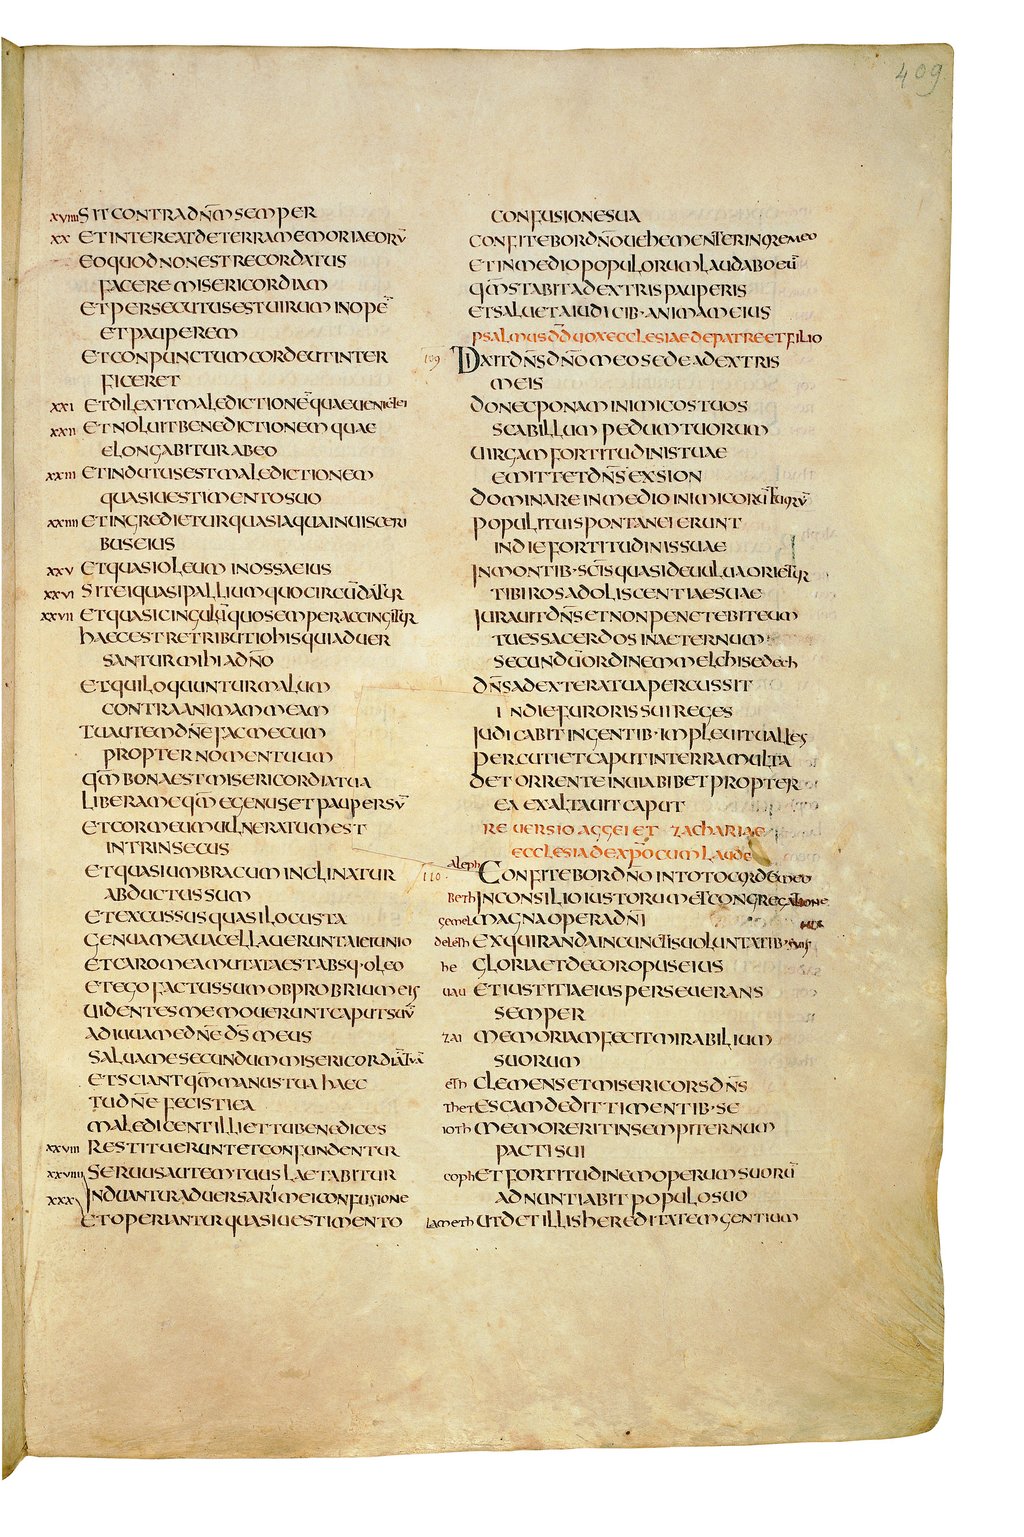 409
xviiii SIT CONTRA DN̄M SEMPER
xx ET INTEREAT DE TERRA MEMORIA EORŪ
EO QUOD NON EST RECORDATUS
FACERE MISERICORDIAM
ET PERSECUTUS EST UIRUM INOPĒ
ET PAUPEREM
ET CONPUNCTUM CORDE UT INTER
FICERET
xxi ET DILEXIT MALEDICTIONĒ QUAE UENIET EI
xxii ET NOLUIT BENEDICTIONEM QUAE
ELONGABITUR AB EO
xxiii ET INDUTUS EST MALEDICTIONEM
QUASI UESTIMENTO SUO
xxiiii ET INGREDIETUR QUASI AQUA IN UISCERI
BUS EIUS
xxv ET QUASI OLEUM IN OSSA EIUS
xxvi SIT EI QUASI PALLIUM QUO CIRCŪDATUR
xxvii ET QUASI CINGULŪ QUO SEMPER ACCINGITUR
HAEC EST RETRIBUTIO HIS QUI ADUER
SANTUR MIHI A DN̄O
ET QUI LOQUUNTUR MALUM
CONTRA ANIMAM MEAM
TU AUTEM DN̄E FAC MECUM
PROPTER NOMEN TUUM
QM̄ BONA EST MISERICORDIA TUA
LIBERA ME QM̄ EGENUS ET PAUPER SŪ
ET COR MEUM UULNERATUM EST
INTRINSECUS
ET QUASI UMBRA CUM INCLINATUR
ABDUCTUS SUM
ET EXCUSSUS QUASI LOCUSTA
GENUA MEA UACELLAUERUNT A IEIUNIO
ET CARO MEA MUTATA EST ABSQ· OLEO
ET EGO FACTUS SUM OBPROBRIUM EIS
UIDENTES ME MOUERUNT CAPUT SUŪ
ADIUUA ME DN̄E DS̄ MEUS
SALUA ME SECUNDUM MISERICORDIĀ TUĀ
ET SCIANT QM̄ MANUS TUA HAEC
TU DN̄E FECISTI EA
MALEDICENT ILLI ET TU BENEDICES
xxviii RESTITUERUNT ET CONFUNDENTUR
xxviiii SERUUS AUTEM TUUS LAETABITUR
xxx INDUANTUR ADUERSARI MEI CONFUSIONE
ET OPERIANTUR QUASI UESTIMENTO
CONFUSIONE SUA
CONFITEBOR DN̄O UEHEMENTER IN ORE MEO
ET IN MEDIO POPULORUM LAUDABO EŪ
QM̄ STABIT A DEXTRIS PAUPERIS
ET SALUET A IUDICIB· ANIMAM EIUS
PSALMUS DD̄ UOX ECCLESIAE DE PATRE ET FILIO
109 DIXIT DN̄S DN̄O MEO SEDE A DEXTRIS
MEIS
DONEC PONAM INIMICOS TUOS
SCABILLUM PEDUM TUORUM
UIRGAM FORTITUDINIS TUAE
EMITTET DN̄S EX SION
DOMINARE IN MEDIO INIMICORŪ TUORŪ
POPULI TUI SPONTANEI ERUNT
IN DIE FORTITUDINIS SUAE
IN MONTIB· SC̄IS QUASI DE UULUA ORIETUR
TIBI ROS ADOLISCENTIAE SUAE
IURAUIT DN̄S ET NON PENETEBIT EUM
TU ES SACERDOS IN AETERNUM
SECUNDŪ ORDINEM MELCHISEDECH
DN̄S A DEXTERA TUA PERCUSSIT
IN DIE FURORIS SUI REGES
IUDICABIT IN GENTIB· IMPLEUIT UALLES
PERCUTIET CAPUT IN TERRA MULTA
DE TORRENTE IN UIA BIBET PROPTER
EA EXALTAUIT CAPUT
REUERSIO AGGEI ET ZACHARIAE
ECCLESIA DE XP̄O CUM LAUDE
110 aleph CONFITEBOR DN̄O IN TOTO CORDE MEO
Beth IN CONSILIO IUSTORUM ET CONGREGATIONE
gemel MAGNA OPERA DN̄I
deleth EXQUIRANDA IN CUNCTIS UOLUNTATIB· SUIS
he GLORIA ET DECOR OPUS EIUS
uau ET IUSTITIA EIUS PERSEUERANS
SEMPER
zai MEMORIAM FECIT MIRABILIUM
SUORUM
eth CLEMENS ET MISERICORS DN̄S
thet ESCAM DEDIT TIMENTIB· SE
ioth MEMOR ERIT IN SEMPITERNUM
PACTI SUI
coph ET FORTITUDINEM OPERUM SUORŪ
ADNUNTIABIT POPULO SUO
lameth UT DET ILLIS HEREDITATEM GENTIUM